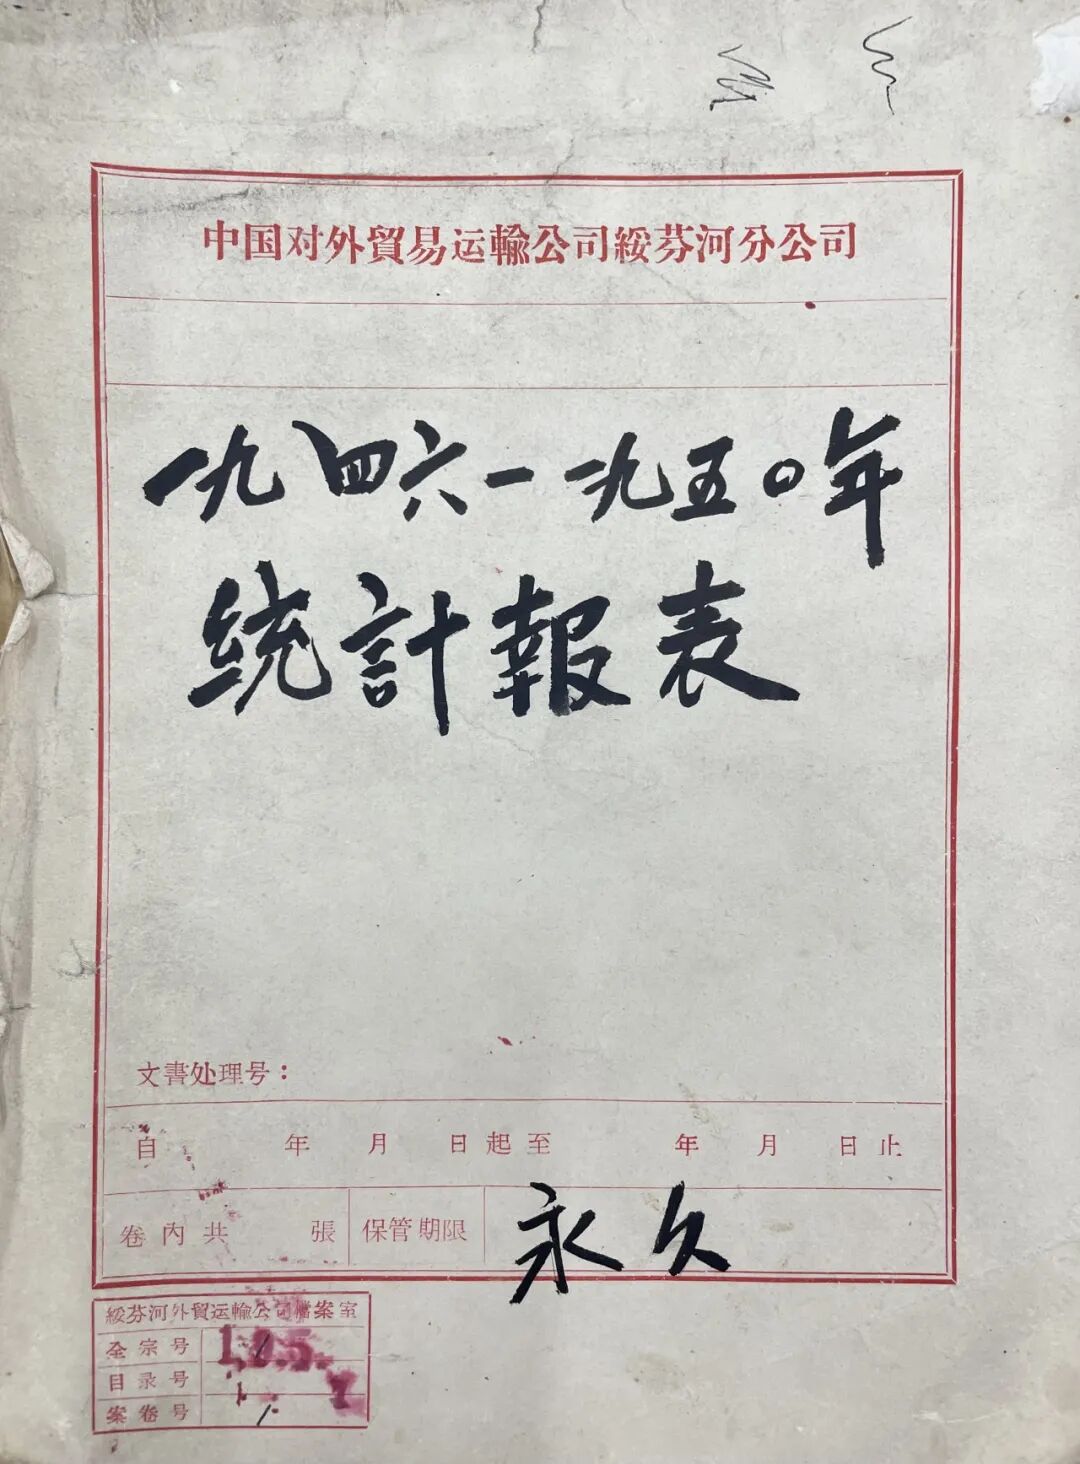 中国对外貿易运輸公司綏芬河分公司
一九四六一一九五〇年
統計報表
文書处理号：
自 年 月 日起至 年 月 日止
卷內共 張 保管期限 永久
綏芬河外貿运輸公司檔案室
全宗号
目录号
案卷号